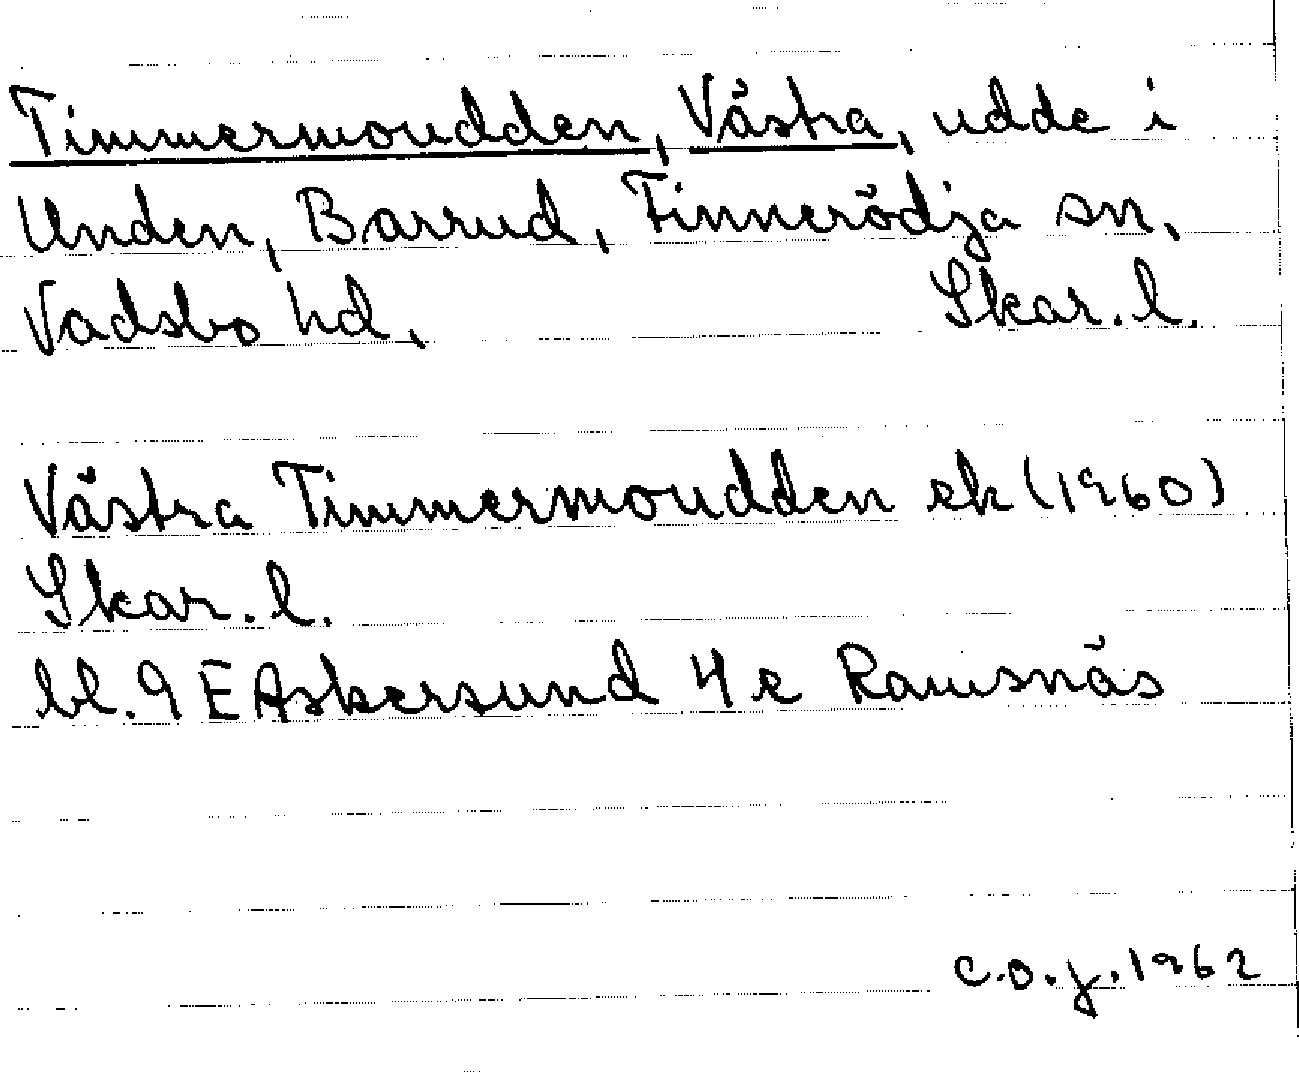 Timmermoudden, Västra, udde i
Unden, Barrud, Finnerödja sn,
Vadsbo hd, Skar. l.
Västra Timmermoudden ek (1960)
Skar. l.
bl. 9 E Askersund 4 e Ramsnäs
C.O.J. 1962